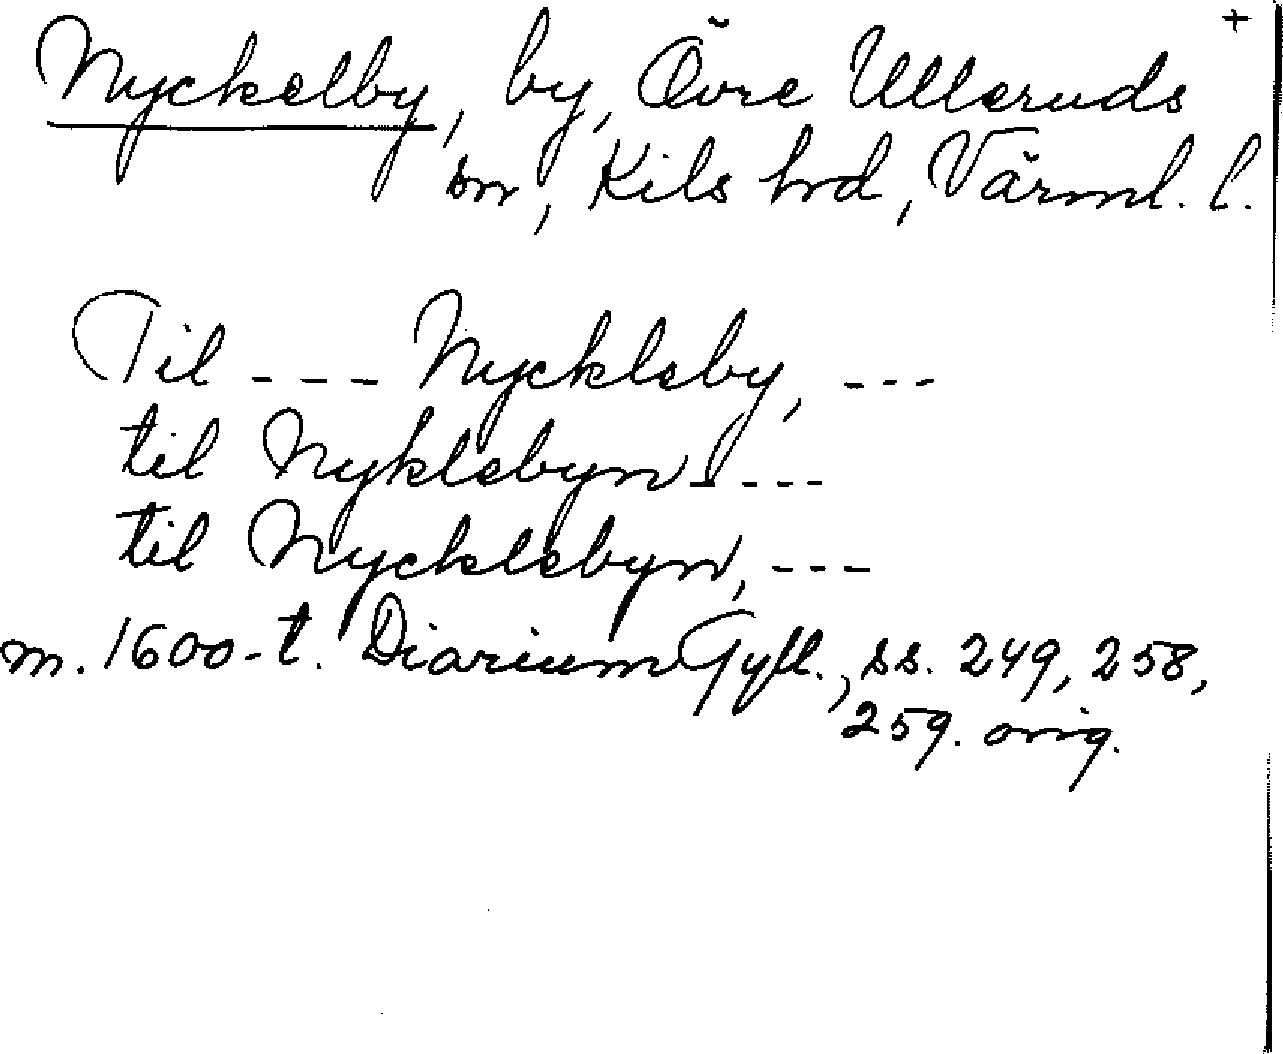 +
Nyckelby, by, Övre Ulleruds
sn, Kils hrd, Värml. l.
Til --- Nyckleby, ---
til Nyklebyn ----
til Nycklebyn, ---
m. 1600-t. Diarium Gyll., ss. 249, 258,
259. orig.